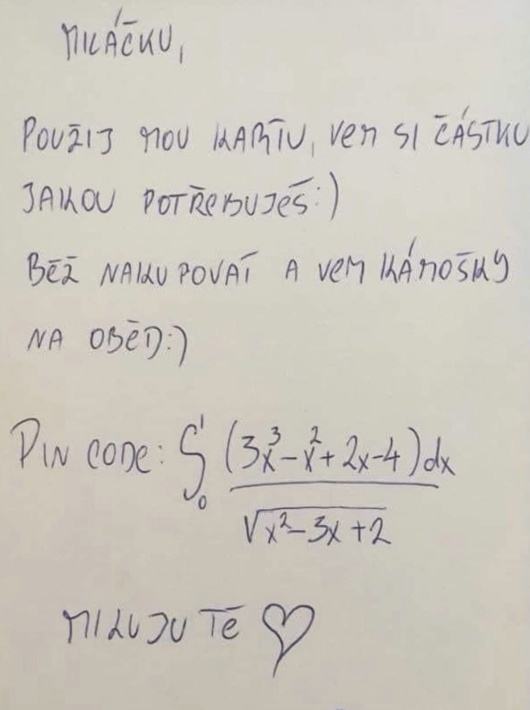 MILÁČKU,
POUŽIJ MOU KARTU, VEM SI ČÁSTKU
JAKOU POTŘEBUJEŠ:)
BĚŽ NAKUPOVAT A VEM KÁMOŠKY
NA OBĚD:)
PIN CODE: ∫₀¹ (3x³-x²+2x-4)dx
√x²-3x+2
MILUJU TĚ ♡